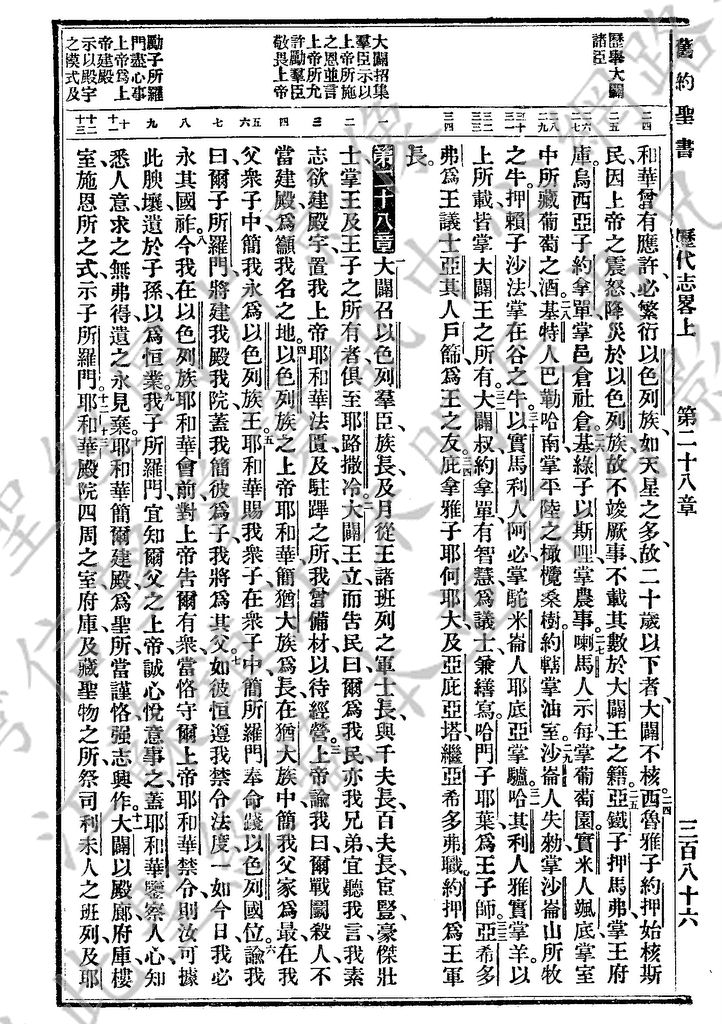 舊約聖書 歷代志畧上 第二十八章 三百八十六
歷舉大闢
諸臣
大闢招集
羣臣示以
上帝所施
之恩並言
上帝所允
許勵羣臣
敬畏上帝
勵子所羅
門盡心事
上帝為上
帝建殿
示以殿宇
之模式及
和華曾有應許必繁衍以色列族如天星之多故二十歲以下者大闢不核西魯雅子約押始核斯
民因上帝之震怒降災於以色列族故不竣厥事不載其數於大闢王之籍亞鐵子押馬弗掌王府
庫烏西亞子約拿單掌邑倉社倉基綠子以斯哩掌農事喇馬人示每掌葡萄園實米人颯底掌室
中所藏葡萄之酒基特人巴勒哈南掌平陸之橄欖桑樹約轄掌油室沙崙人失勑掌沙崙山所牧
之牛押賴子沙法掌在谷之牛以實馬利人阿必掌駝米崙人耶底亞掌驢哈其利人雅實掌羊以
上所載皆掌大闢王之所有大闢叔約拿單有智慧為議士兼繕寫哈門子耶葉為王子師亞希多
弗為王議士亞其人戶篩為王之友庇拿雅子耶何耶大及亞庇亞塔繼亞希多弗職約押為王軍
長
第二十八章 大闢召以色列羣臣族長及月從王諸班列之軍士長與千夫長百夫長宦豎豪傑壯
士掌王及王子之所有者俱至耶路撒冷大闢王立而告民曰爾為我民亦我兄弟宜聽我言我素
志欲建殿宇置我上帝耶和華法匱及駐蹕之所我曾備材以待經營上帝諭我曰爾戰鬭殺人不
當建殿為籲我名之地以色列族之上帝耶和華簡猶大族為長在猶大族中簡我父家為最在我
父衆子中簡我永為以色列族王耶和華賜我衆子在衆子中簡所羅門奉命踐以色列國位諭我
曰爾子所羅門將建我殿我院蓋我簡彼為子我將為其父如彼恒遵我禁令法度一如今日我必
永其國祚今我在以色列族耶和華會前對上帝告爾有衆當恪守爾上帝耶和華禁令則汝可據
此腴壤遺於子孫以為恒業我子所羅門宜知爾父之上帝誠心悅意事之蓋耶和華鑒察人心知
悉人意求之無弗得遺之永見棄耶和華簡爾建殿為聖所當謹恪强志興作大闢以殿廊府庫樓
室施恩所之式示子所羅門耶和華殿院四周之室府庫及藏聖物之所祭司利未人之班列及耶